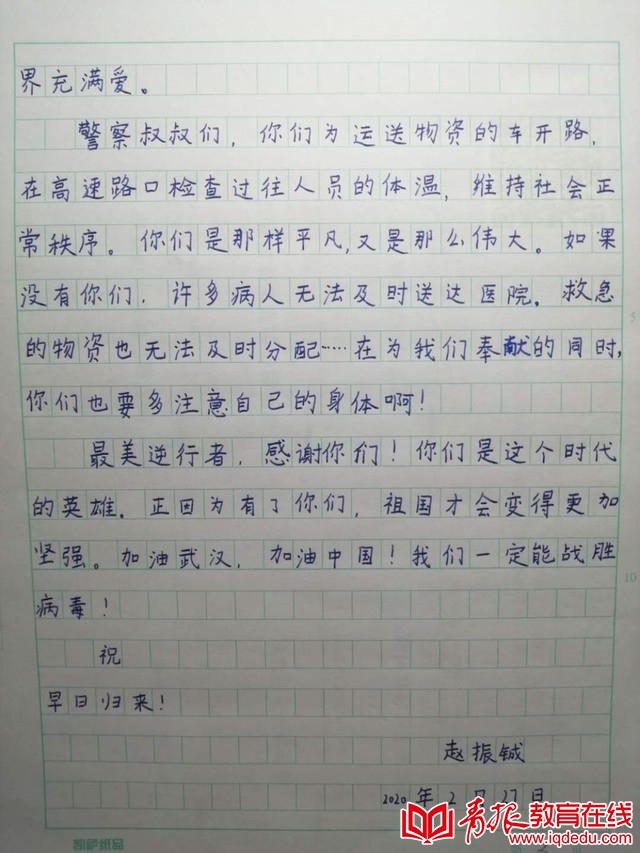 界充满爱。
警察叔叔们，你们为运送物资的车开路，
在高速路口检查过往人员的体温，维持社会正
常秩序。你们是那样平凡，又是那么伟大。如果
没有你们，许多病人无法及时送达医院。救急
的物资也无法及时分配……在为我们奉献的同时，
你们也要多注意自己的身体啊！
最美逆行者，感谢你们！你们是这个时代
的英雄。正因为有了你们，祖国才会变得更加
坚强。加油武汉，加油中国！我们一定能战胜
病毒！
祝
早日归来！
赵振铖
2020年2月27日
5
10
凯萨纸品
青报教育在线
www.iqdedu.com